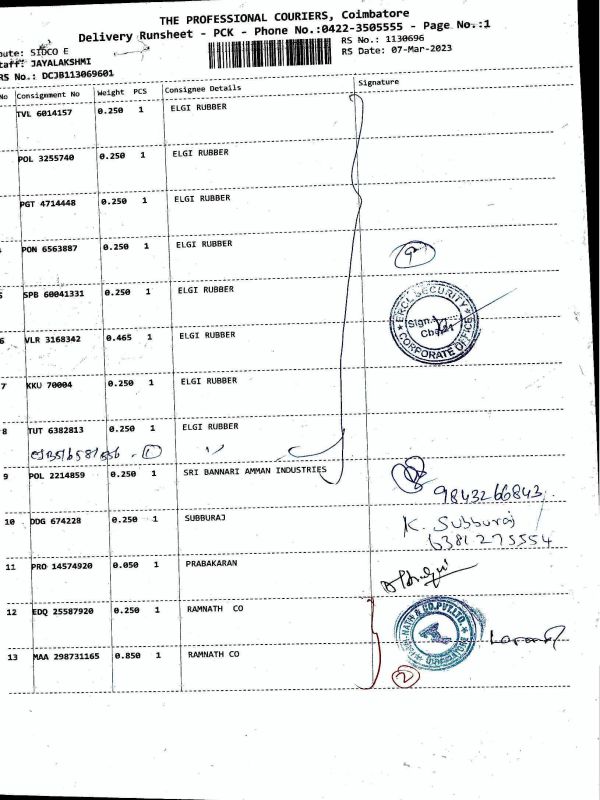 THE PROFESSIONAL COURIERS, Coimbatore
Delivery Runsheet - PCK - Phone No.:0422-3505555 - Page No.:1
oute: SIDCO E
taff: JAYALAKSHMI
RS No.: DCJB113069601
RS No.: 1130696
RS Date: 07-Mar-2023
No Consignment No Weight PCS Consignee Details Signature
TVL 6014157 0.250 1 ELGI RUBBER
POL 3255740 0.250 1 ELGI RUBBER
PGT 4714448 0.250 1 ELGI RUBBER
PON 6563887 0.250 1 ELGI RUBBER
9
5 SPB 60041331 0.250 1 ELGI RUBBER
ERCL SECURITY
Sign.
CORPORATE OFFICE
6 VLR 3168342 0.465 1 ELGI RUBBER
7 KKU 70004 0.250 1 ELGI RUBBER
8 TUT 6382813 0.250 1 ELGI RUBBER
1
9 POL 2214859 0.250 1 SRI BANNARI AMMAN INDUSTRIES
9843266843
10 DDG 674228 0.250 1 SUBBURAJ
K. Subburaj
6381275554
11 PRO 14574920 0.050 1 PRABAKARAN
12 EDQ 25587920 0.250 1 RAMNATH CO
NATH & CO.PVT.LTD.
13 MAA 298731165 0.850 1 RAMNATH CO
2